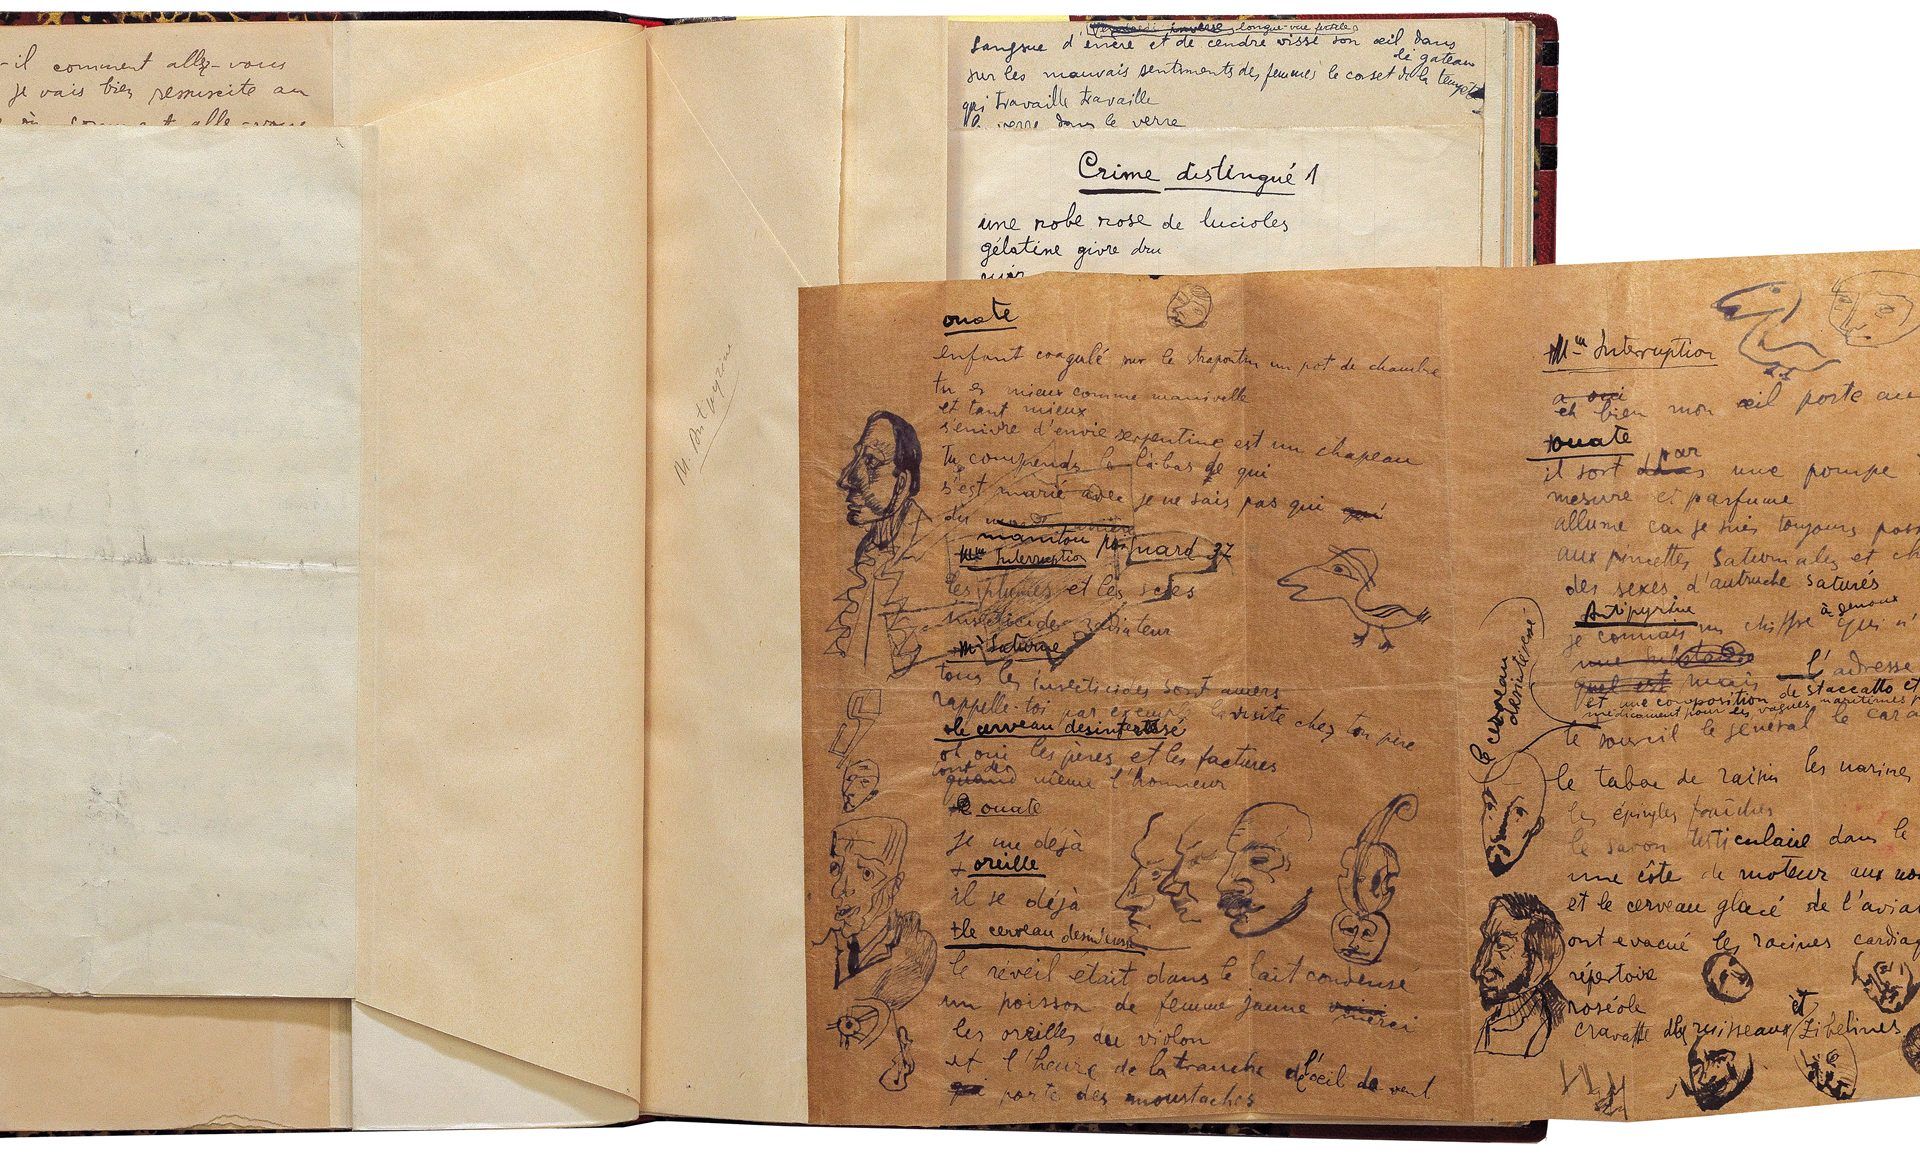 -il comment allez-vous
je vais bien ressuscite au
M. Antipyrine
longue-vue fertiles
sangsue d'encre et de cendre visse son œil dans
le gateau
sur les mauvais sentiments des femmes le corset de la tempête
qui travaille travaille
le verre dans le verre
Crime distingué 1
une robe rose de lucioles
gélatine givre dru
ouate
enfant coagulé sur le strapontin un pot de chambre
tu es mieux comme manivelle
et tant mieux
s'enivre d'envie serpentine est un chapeau
tu comprends le là-bas de qui
s'est marié avec je ne sais pas qui qui
du
manitou poignard 37
Mme Interruption
les plumes et les scies
insecticide radiateur
Mr Saturne
tous les insecticides sont amers
rappelle-toi par exemple la visite chez ton père
le cerveau désintéressé
oh oui les pères et les factures
sont de
quand même l'honneur
ouate
je me déjà
+ oreille
il se déjà
+ le cerveau désintéressé
le réveil était dans le lait condensé
un poisson de femme jaune merci
les oreilles du violon
et l'heure de la tranche de l'œil de vent
qui porte des moustaches
Mme Interruption
a oui
eh bien mon œil porte
+ ouate
il sort par une pompe
mesure et parfume
allume car je suis toujours
aux pincettes saturnales et
des sexes d'autruche saturés
Antipyrine
je connais un chiffre à genoux qui n'
une
quel est mais l'adresse
et une composition de staccatto et
médicament pour les vagues maritimes
le cerveau
désintéressé
le sourcil le général le
le tabac de raisin les narines
les épingles fraîches
le savon testiculaire dans le
une côte de moteur aux
et le cerveau glacé de l'
ont evacué les racines
répertoire
roséole
cravatte de ruisseaux et zibelines